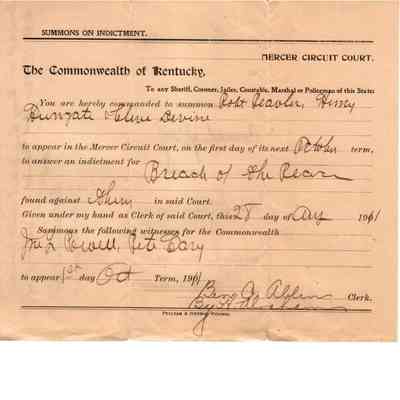 SUMMONS ON INDICTMENT.
MERCER CIRCUIT COURT.
The Commonwealth of Kentucky,
To any Sheriff, Coroner, Jailer, Constable, Marshal or Policeman of this State:
You are hereby commanded to summon Robt Henry
& Devine
to appear in the Mercer Circuit Court, on the first day of its next October term,
to answer an indictment for
Breach of the Peace
found against them in said Court.
Given under my hand as Clerk of said Court, this 28 day of Aug 1901
Summons the following witnesses for the Commonwealth
Powell, Pete
to appear 1st day Oct Term, 190
Ben Allin Clerk.
By